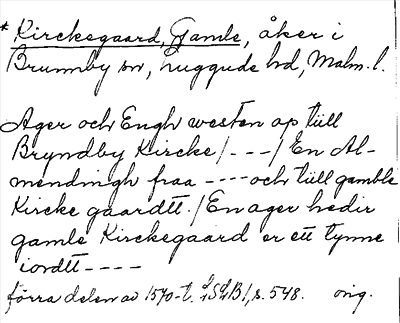 * Kirckegaard, Gamle, åker i
Brunnby sn, Luggude hd, Malm. l.
Ager och Engh westen op tiill
Bryndby Kircke /---/ En Al-
mendingh fraa ---- och tiill gamble
Kircke gaardtt. / En ager hedir
gamle Kirckegaard er ett tynne
iordtt ----
förra delen av 1570-t. LSLB I, s. 548. orig.